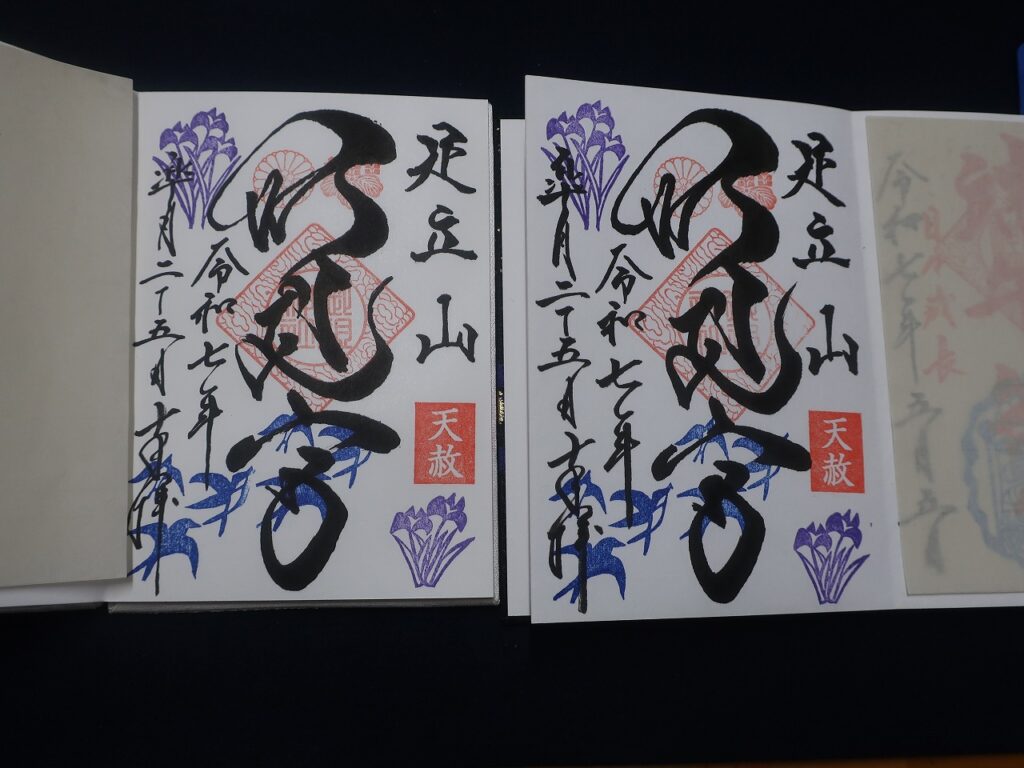 足立山
天赦
妙見宮
令和七年
皐月二十五日 奉拝
足立山
天赦
妙見宮
令和七年
皐月二十五日 奉拝
令和七年五月五日